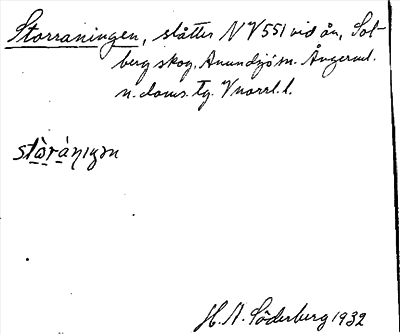 Storraningen, slåtter NV 551 vid ån, Sol-
berg skog, Anundsjö sn. Ångerml.
n. doms. tg. Vnorrl. l.
stòráningən
H. A. Söderberg 1932